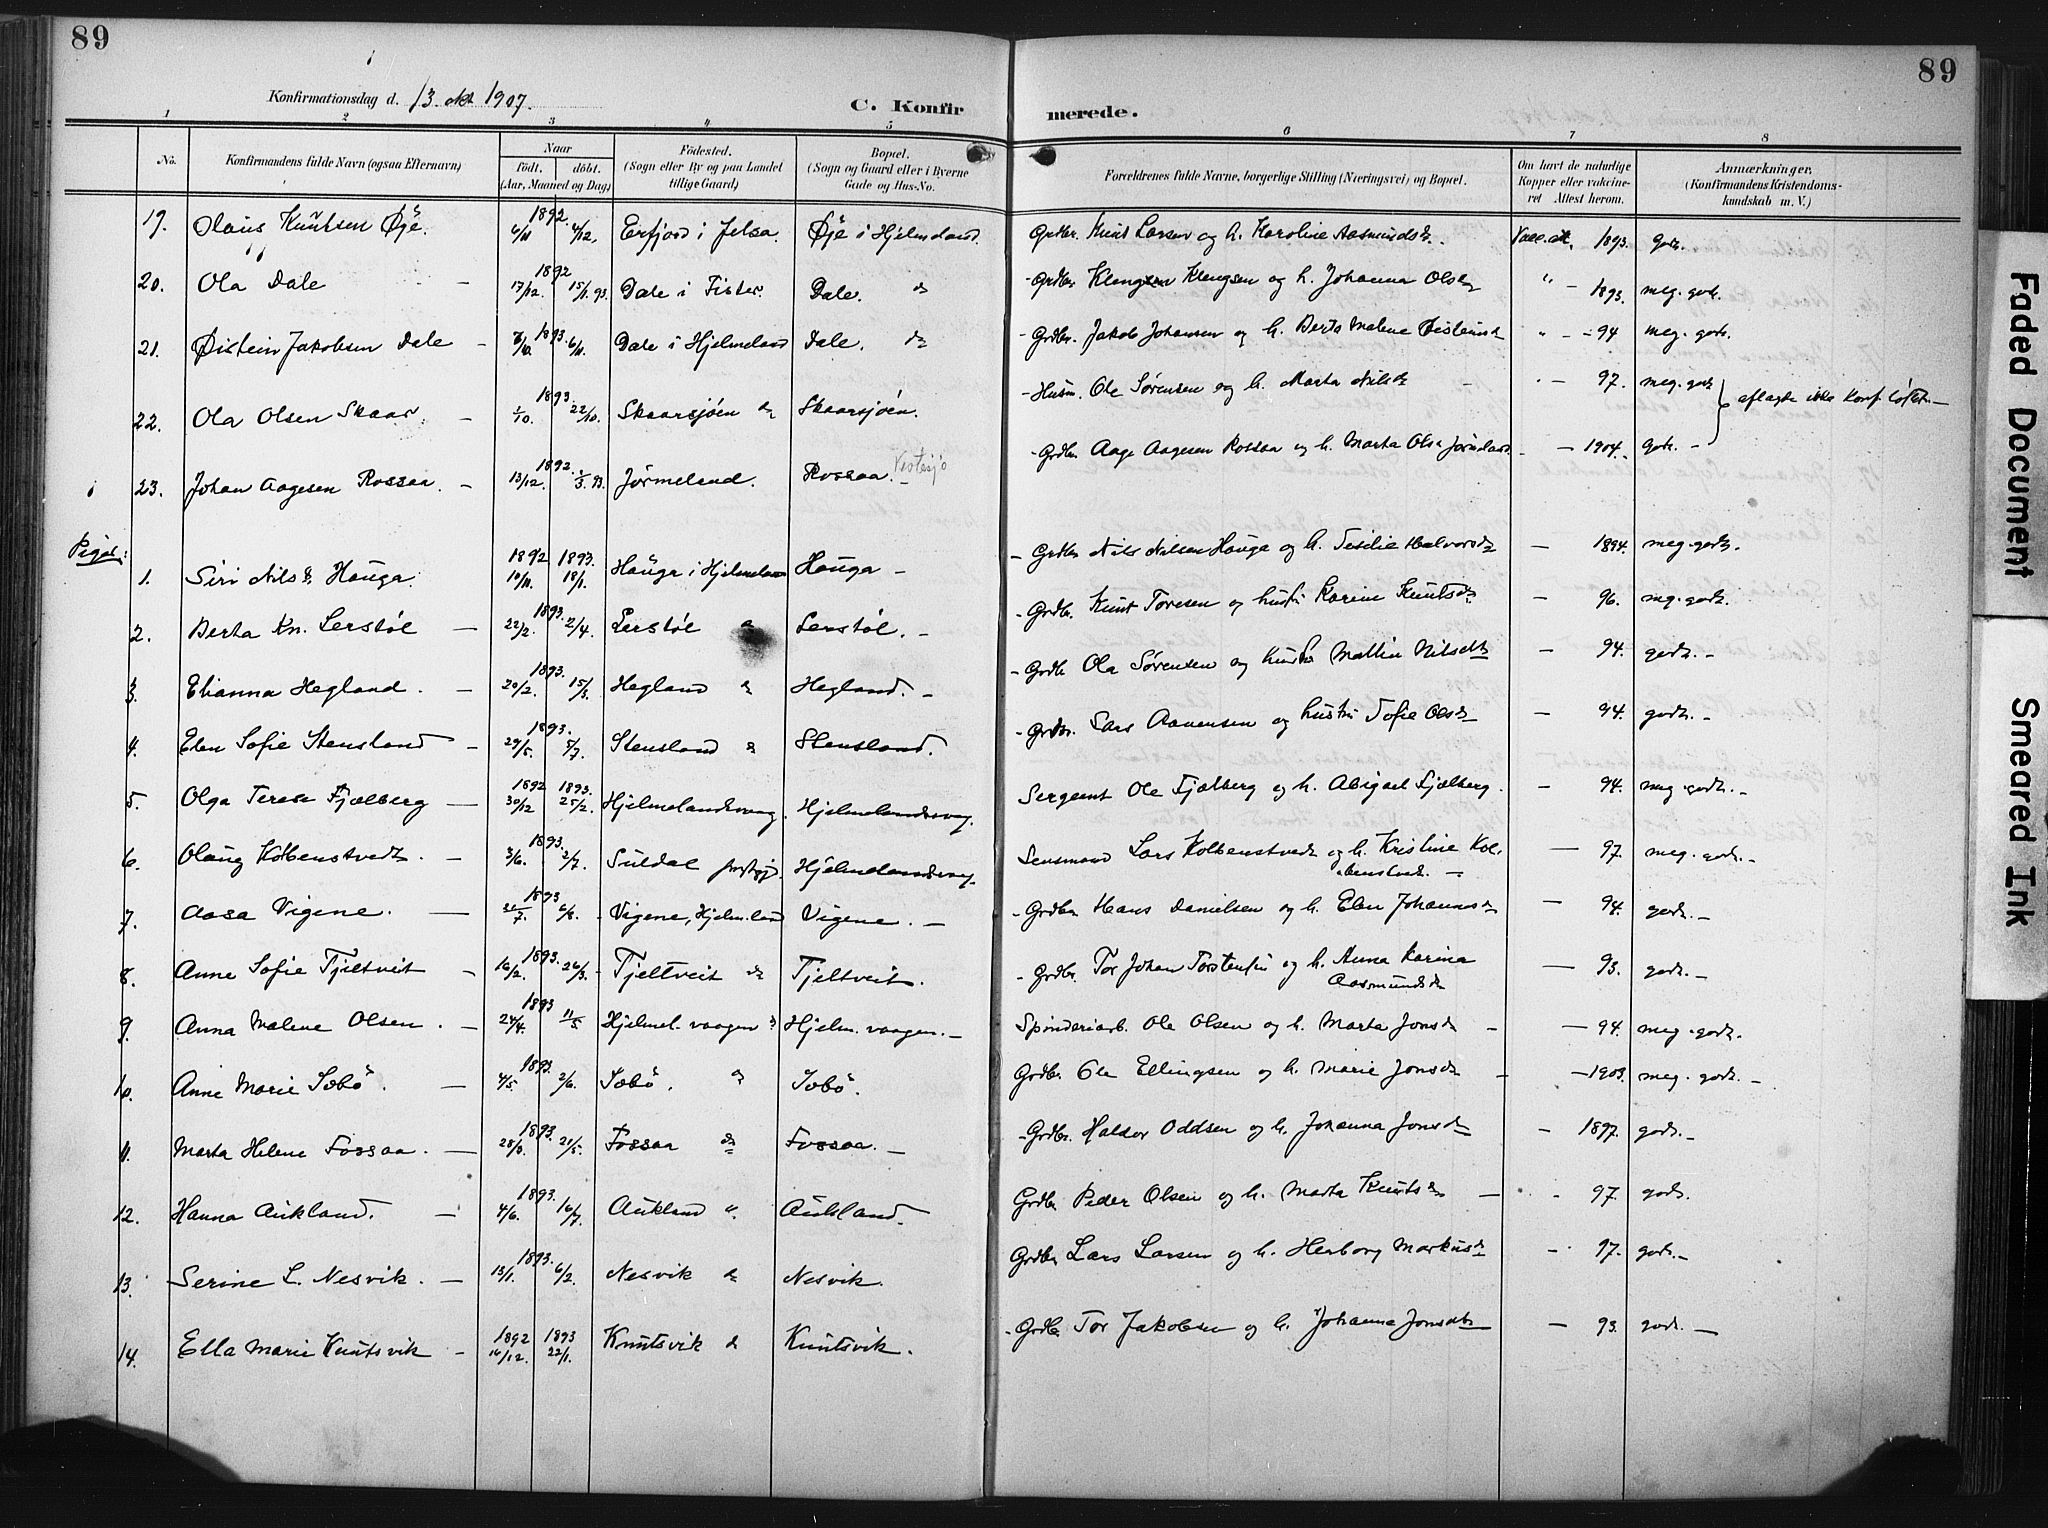 89
89
Konfirmationsdag d. 13. okt 1907.
C. Konfirmerede.
1 2 3 4 5 6 7 8
No. Konfirmandens fulde Navn (ogsaa Efternavn) Naar født. døbt. (Aar, Maaned og Dag) Fødested. (Sogn eller By og paa Landet tillige Gaard) Bopæl. (Sogn og Gaard eller i Byerne Gade og Hus-No. Forældrenes fulde Navne, borgerlige Stilling (Næringsvei) og Bopæl. Om havt de naturlige Kopper eller vaccineret Attest herom. Anmærkninger. (Konfirmandens Kristendomskundskab m. V.)
19. Olaus Knutsen Øje. 1892 6/11 4/12. Erfjord i Jelsa. Øje i Hjelmeland. Grdbr. Knut Larsen og h. Karoline Aasmundsdr. Vacc. att. 1893. godt.
20. Ola Dale 1892 17/12. 15/1. 93. Dale i Fister. Dale. do - Grdbr. Klengsen Klengsen og h. Johanna Olsdr " - 1893. meg. godt.
21. Øistein Jakobsen Dale - 1893. 6/11. Dale i Hjelmeland Dale. do - Grdbr. Jakob Johansen og h. Berta Malene Øisteinsdr " - 94 meg. godt.
22. Ola Olsen Skaar. - 1893. 1/10. 22/10. Skaarsjøen do Skaarsjøen. - Husm. Ole Sørensen og h. Marta Nilsdr - 97. meg. godt } aflagte ikke Konf. løftet. -
23. Johan Aagesen Rossaa. - 1892. 13/12. 93. Jørmeland. Rossaa. - Vestesjø - Grdbr. Aage Aagesen Rossaa og h. Marta Olsdr Jørmeland - 1904. godt. -
Piger:
1. Siri Nilsdr Hauga. 1892 10/11. 1893. 18/1. Hauga i Hjelmeland Hauga - - Grdbr. Nils Nilsen Hauga og h. Sesilie Halvorsdr - 1894. meg. godt.
2. Berta Kn. Lerstøl - 1893. 22/2. 2/4. Lerstøl do Lerstøl. - - Grdbr. Knut Toresen og hustru Karine Knutsdr - 96. mg. godt.
3. Elianna Hegland. - 1893. 20/2. 15/3. Hegland do Hegland. - - Grdbr Ola Sørensen og hustru Mallin Nilsdtr - 94. godt. -
4. Elen Sofie Stensland - 1893. 29/5. 5/7. Stensland do Stensland. - Grdbr. Lars Aanensen og hustru Sofie Olsdr - 94. godt. -
5. Olga Terese Fjælberg - 1892 30/12 1893. 25/2. Hjelmelandsvaag. Hjelmelandsvaag. Sergeant Ole Fjælberg og h. Abigael Fjælberg. - 94. meg. godt. -
6. Olaug Kolbenstvedt. - 1893. 3/6. 2/7. Suldal prestgj. Hjelmelandsvaag. Lensmand Lars Kolbenstvedt og h. Kristine Kolbenstvedt. - - 97. meg. godt. -
7. Aasa Vigene. - 1893 6/8. Vigene, Hjelmeland Vigene. - - Grdbr. Hans Danielsen og h. Elen Johannesdr - 94. godt. -
8. Anne Sofie Tjeltveit - 1893. 16/2. 26/3. Tjeltveit do Tjeltveit. - Grdbr. Tor Johan Torstensen og h. Anna Karina Aasmundsdr - 93. godt. -
9. Anna Malene Olsen. - 1893 24/4. 11/5. Hjelmel. vaagen do Hjelm. vaagen. - Spinderiarb. Ole Olsen og h. Marta Jonsdr - - 94. meg. godt.
10. Anne Marie Sæbø. - 1893. 4/5. 2/6. Sæbø. do Sæbø. Grdbr. Ole Ellingsen og h. Marie Jonsdr - - 1903. meg. godt. -
11. Marta Helene Fossaa. - 1893. 28/3. 21/5. Fossaa do Fossaa. - - Grdbr. Haldor Oddsen og h. Johanna Jonsdr - 1897. godt. -
12. Hanna Aukland. - 1893. 4/6. 16/7. Aukland ". Aukland. Grdbr. Peder Olsen og h. Marta Knutsdr - - 97. godt.
13. Serine L. Nesvik. - 1893. 13/1. 6/2. Nesvik do Nesvik. Grdbr Lars Larsen og h. Herborg Markusdr - 97. godt. -
14. Ella Marie Knutsvik - 1892 16/12. 1893 22/1. Knutsvik do Knutsvik. - Grdbr. Tor Jakobsen og h. Johanna Jonsdtr - 93. godt. -
Faded Document
Smeared Ink